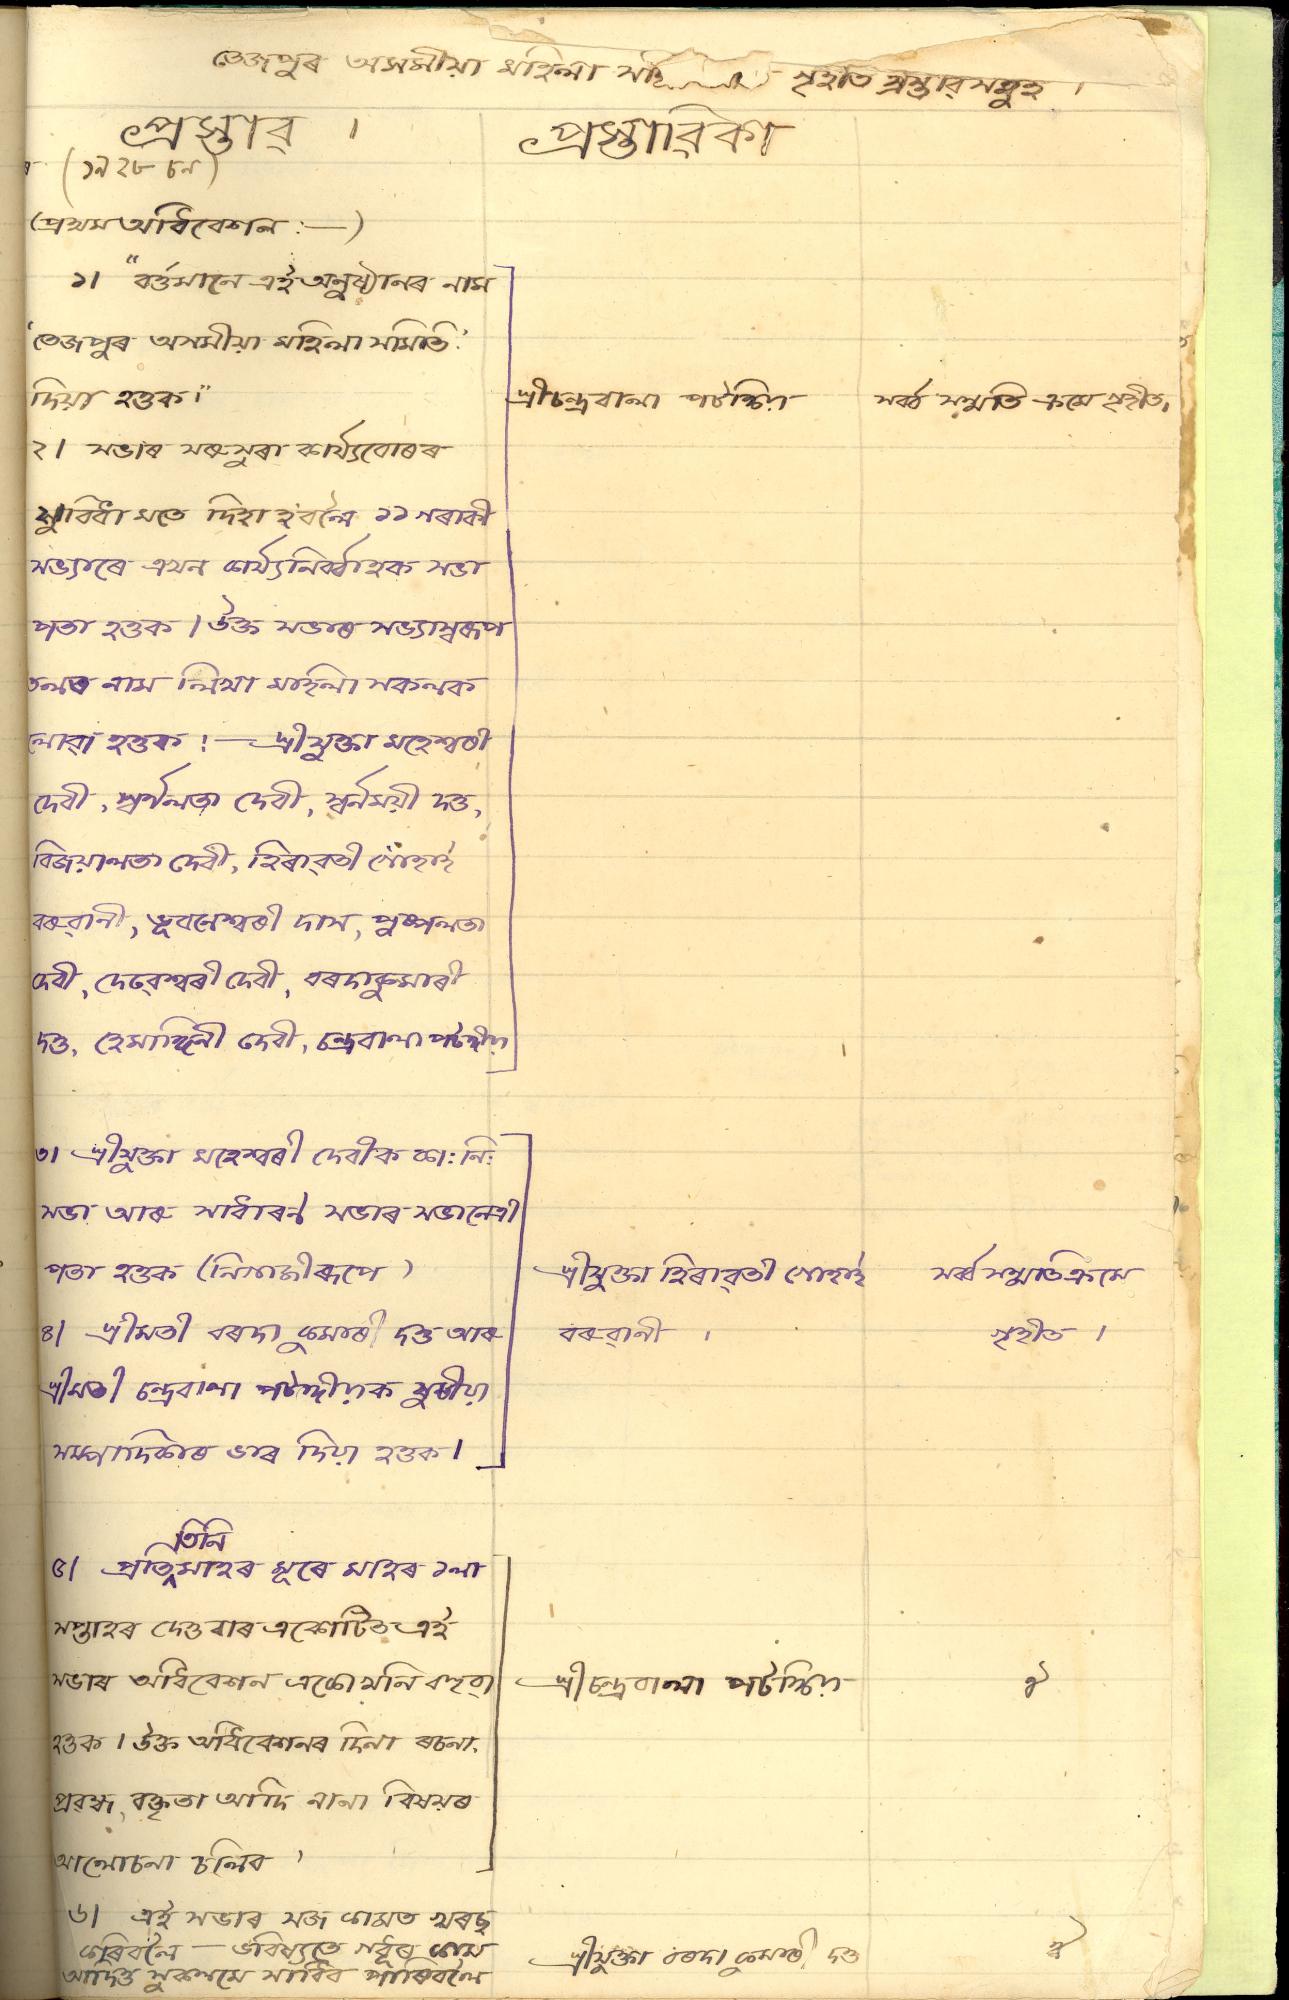 তেজপুৰ অসমীয়া মহিলা গৃহীত প্ৰস্তাৱ সমুহ ।
প্ৰস্তাৱ ।
প্ৰস্তাৱিকা
(১৯২৮ চন)
(প্ৰথম অধিবেশন :—)
১। "বৰ্ত্তমানে এই অনুষ্ঠানৰ নাম
'তেজপুৰ অসমীয়া মহিলা সমিতি'
দিয়া হওক।"
শ্ৰীচন্দ্ৰবালা পটঙ্গিয়া
সৰ্ব্ব সন্মতি ক্ৰমে গৃহীত।
২। সভাৰ সৰুসুৰা কাৰ্য্যবোৰৰ
সুবিধা মতে দিহা হবলৈ ১১ গৰাকী
সভ্যাৰে এখন কাৰ্য্যনিৰ্ব্বাহক সভা
পতা হওক । উক্ত সভাৰ সভ্যাস্বৰূপ
তলত নাম লিখা মহিলা সকলক
লোৱা হওক :— শ্ৰীযুক্তা মহেশ্বৰী
দেবী, স্বৰ্ণলতা দেবী, স্বৰ্নময়ী দত্ত,
বিজয়ালতা দেবী, হিৰাৱতী গোঁহাই
বৰুৱানী, ভূবনেশ্বৰী দাস, পুষ্পলতা
দেবী, দেৱেশ্বৰী দেবী, বৰদাকুমাৰী
দত্ত, হেমাঙ্গিনী দেবী, চন্দ্ৰবালা পটঙ্গীয়া
৩। শ্ৰীযুক্তা মহেশ্বৰী দেবীক কা: নি:
সভা আৰু সাধাৰন সভাৰ সভানেত্ৰী
পতা হওক
শ্ৰীযুক্তা হিৰাৱতী গোহাই
সৰ্ব্ব সন্মতিক্ৰমে
৪। শ্ৰীমতী বৰদা কুমাৰী দত্ত আৰু
বৰুৱানী ।
গৃহীত ।
শ্ৰীমতী চন্দ্ৰবালা পটঙ্গীয়াক যুটীয়া
সম্পাদিকাৰ ভাৰ দিয়া হওক।
তিনি
৫। প্ৰতি মাহৰ মূৰে মাহৰ ১লা
সপ্তাহৰ দেওবাৰ একোটিত এই
সভাৰ অধিবেশন একোখনি বহুৱা
শ্ৰীচন্দ্ৰবালা পটঙ্গিয়া
ঐ
হওক । উক্ত অধিবেশনৰ দিনা ৰচনা,
প্ৰৱন্ধ, বক্তৃতা আদি নানা বিষয়ৰ
আলোচনা চলিব ।
৬। এই সভাৰ মজ কামত খৰছ
কৰিবলৈ — ভবিষ্যতে গধূৰ কাম
শ্ৰীযুক্তা বৰদা কুমাৰী দত্ত
ঐ
আদিত সুকলমে সাধিব পাৰিবলৈ